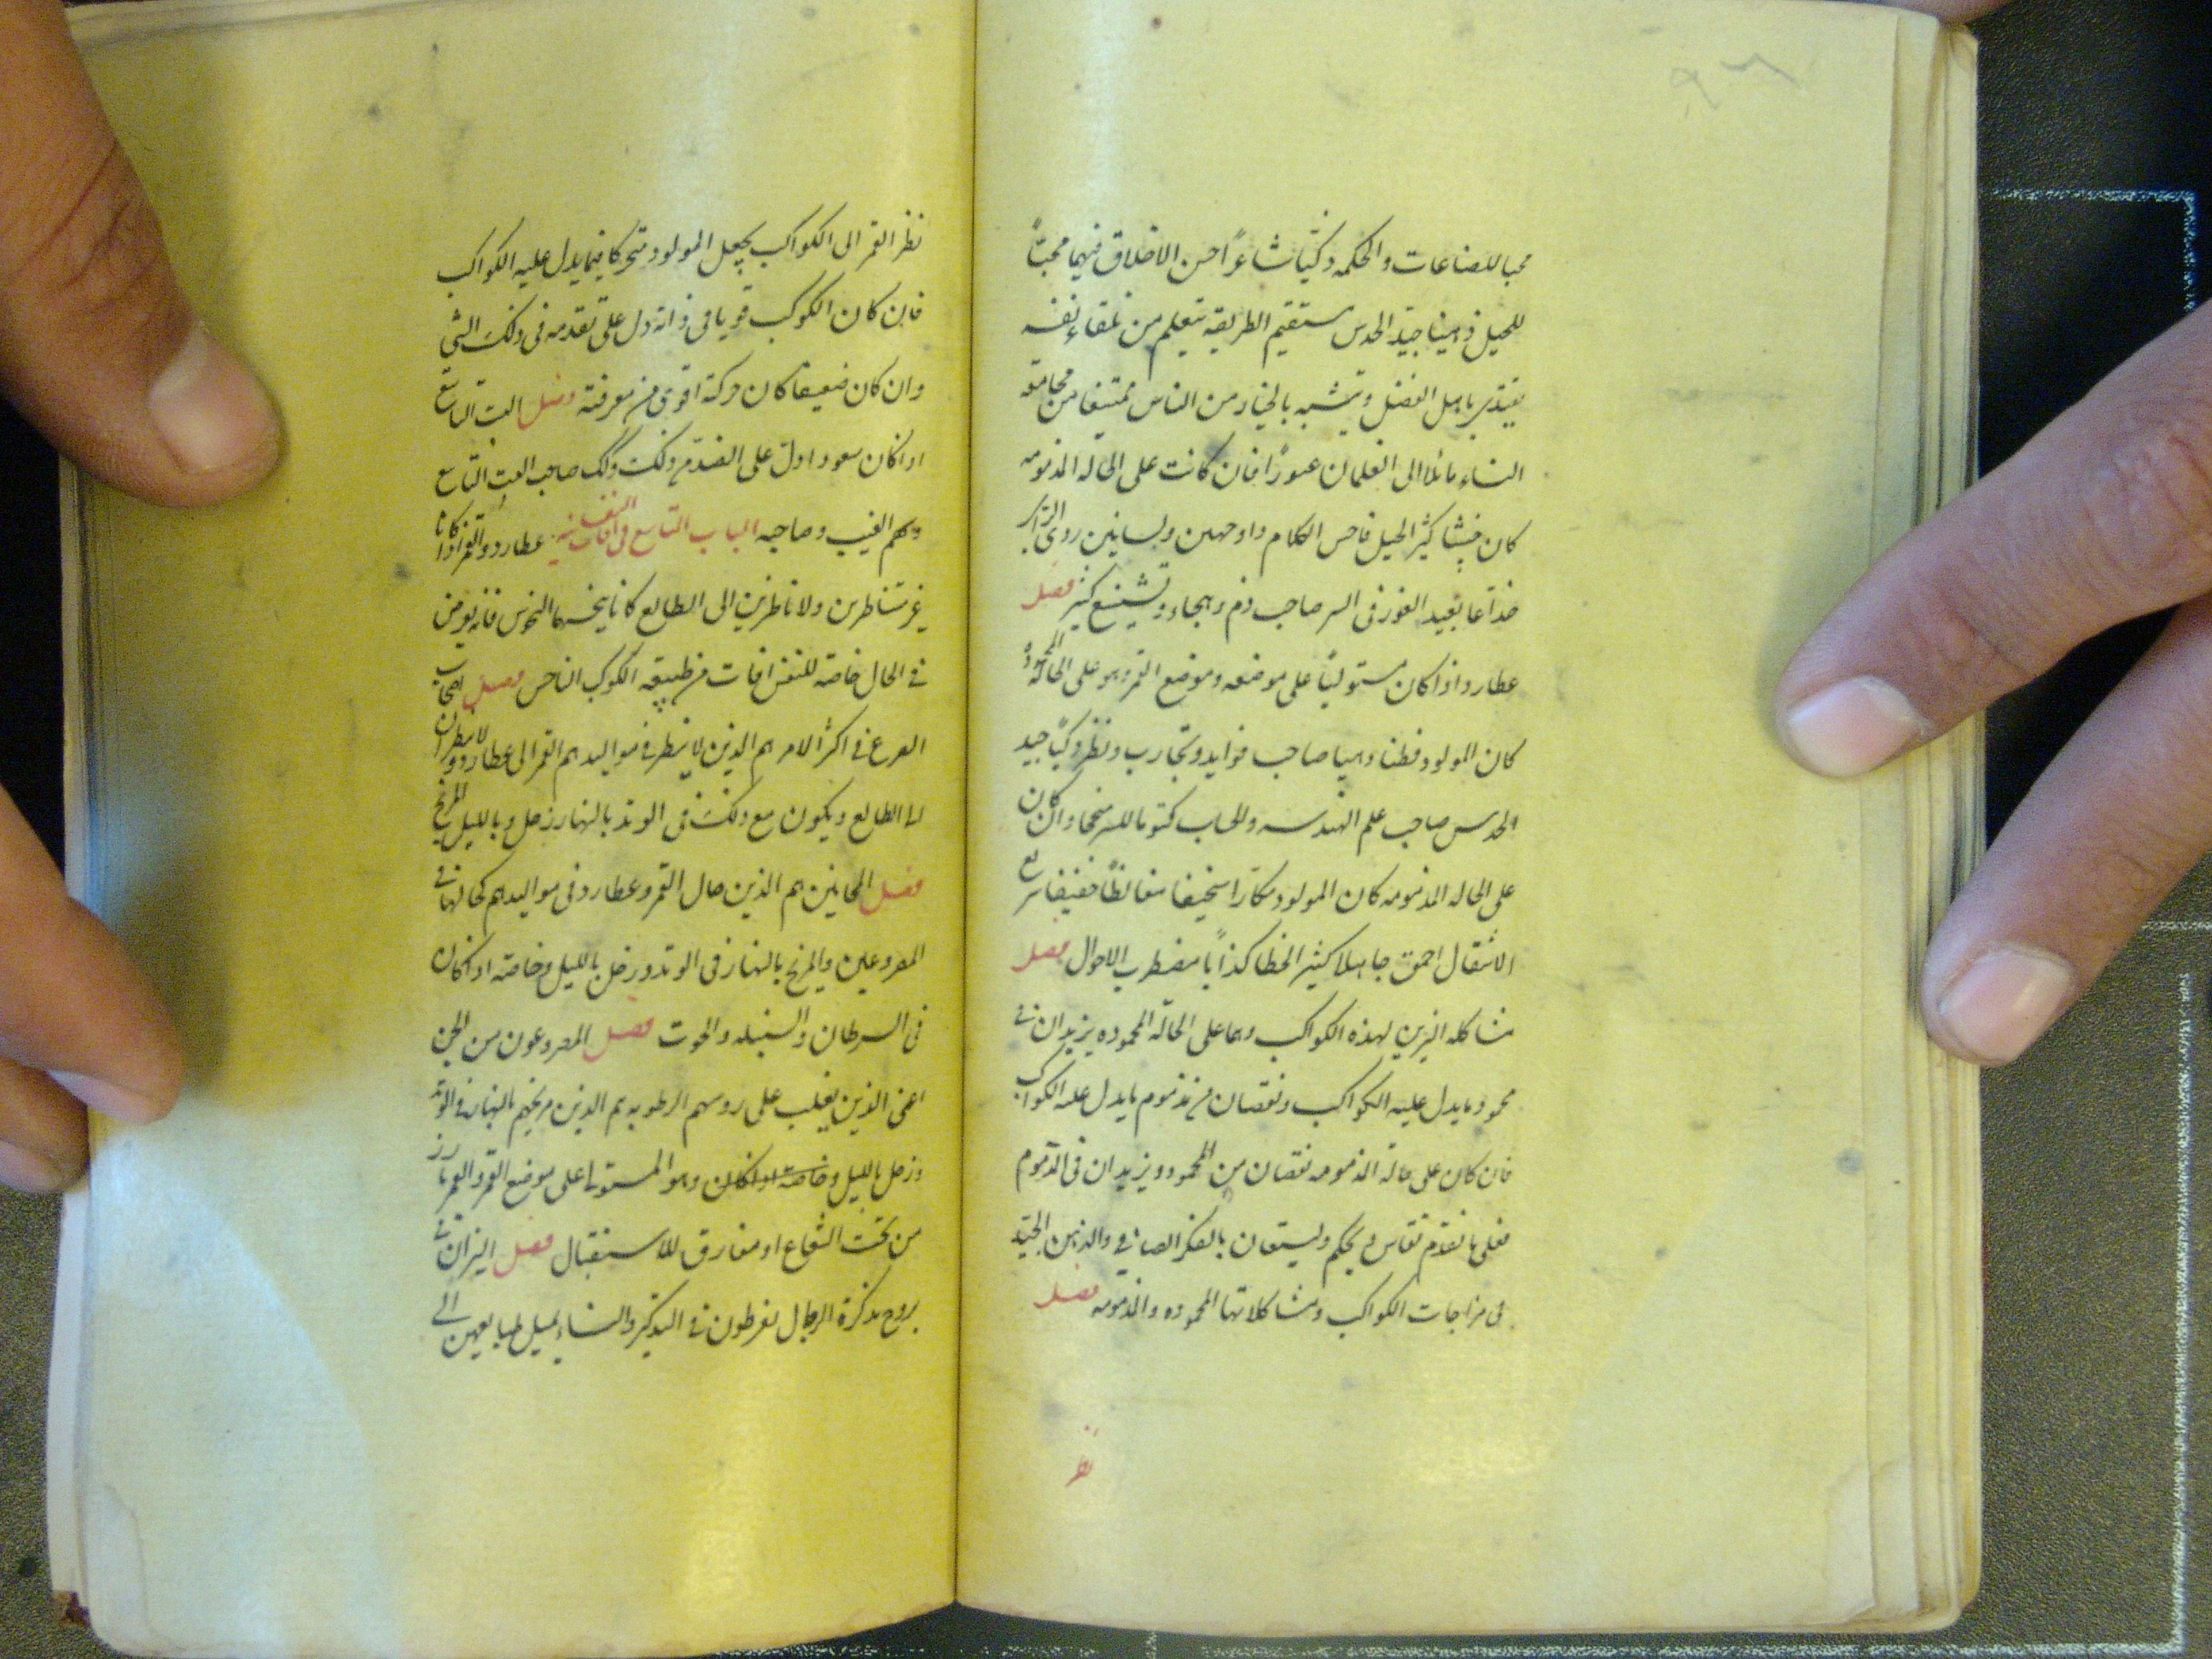 محبا للصناعات والحكمه ذكيّا شاعرًا حسن الاخلاق فهيما محبّاً
للحيل ذهينا جيّد الحدس مستقيم الطريقه يتعلم من تلقاء نفسه
يقتدي باهل الفضل ويتشبه بالخيار من الناس ممتنعا من مجامعة
النساء مائلا الى الغلمان غيورًا فان كانت على الحاله المذمومه
كان خبيثا كثير الحيل فاحس الكلام ذا وجهين ولسانين ردى التدابير
خدّاعا بعيد الغور فى السر صاحب ذم وهجاء وتشنيع كثير فصل
عطارد اذا كان مستوليًا على موضعه وموضع القمر وهو على الحالة المحمودة
كان المولود فطنا ذهينا صاحب فوايد وتجارب ونظر ذكيًّا جيد
الحدس صاحب علم الهندسه والحساب كتوما للسر منجما وان كان
على الحاله المذمومه كان المولود مكّارا سخيفا مغالطًا خفيفا سريع
الانتقال احمق جاهلا كثير الخطا كذابًا مضطرب الاحوال فصل
مشاكله النيرين لهذه الكواكب وهما على الحالة المحموده يزيدان فى
محمود ما يدل عليه الكواكب ونقصان من مذموم ما يدل عليه الكواكب
فان كان على حالة المذمومه نقصان من المحمود ويزيدان فى المذموم
فعلى ما تقدم تقاس ويحكم وليستعان بالفكر الصافى والذهن الجيّد
فى مزاجات الكواكب ومشاكلاتها المحموده والمذمومه فصل
نظر
نظر القمر الى الكواكب يجعل المولود متحركا فيما يدل عليه الكواكب
فان كان الكوكب قويا فى ذاته دل على تقدمه فى ذلك الشى
وان كان ضعيفا كان حركة اقوى من معرفته فصل البيت التاسع
اذا كان سعودا دل على الصدق وكذلك صاحب البيت التاسع
وسهم الغيب وصاحبه الباب التاسع فى افات النفسانيه عطارد والقمر اذا كانا
غير متناظرين ولا ناظرين الى الطالع كانا ينحسهما النحوس فانه يعرض
فى الحال خاصة للنفس افات من طبيعة الكوكب الناحس فصل اصحاب
الصرع فى اكثر الامر هم الذين لا ينظر فى مواليدهم القمر الى عطارد ولا ينظران
الى الطالع ويكون مع ذلك فى الوتد بالنهار زحل وبالليل المريخ
فصل المجانين هم الذين حال القمر وعطارد فى مواليدهم كحالهما فى
المصروعين والمريخ بالنهار فى الوتد وزحل بالليل وخاصة اذا كان
فى السرطان والسنبله والحوت فصل المصروعون من الجن
اعنى الذين يغلب على روسهم الرطوبه هم الذين مريخهم بالنهار فى الوتد
وزحل بالليل وخاصة اذا كان وهو المستولى على موضع القمر والقمر بارز
من تحت الشعاع او مفارق للاستقبال فصل النيران فى
بروج مذكرة الرجال يفرطون فى التذكير والنساء يميل طبايعهن الى